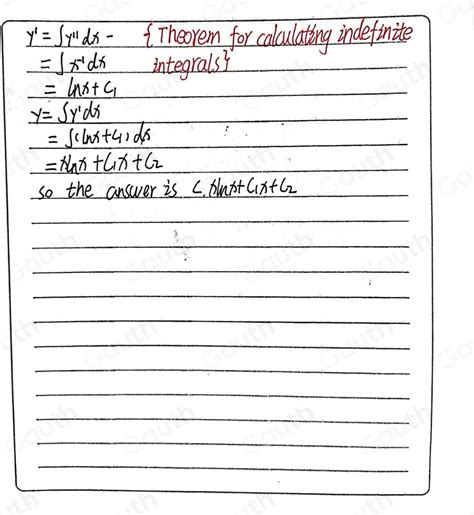 y' = ∫y'' dx - {Theorem for calculating indefinite
= ∫x⁻¹ dx integrals}
= lnx + C₁
y = ∫y'dx
= ∫(lnx+C₁) dx
= xlnx + C₁x + C₂
so the answer is C. xlnx + C₁x + C₂
Gauth